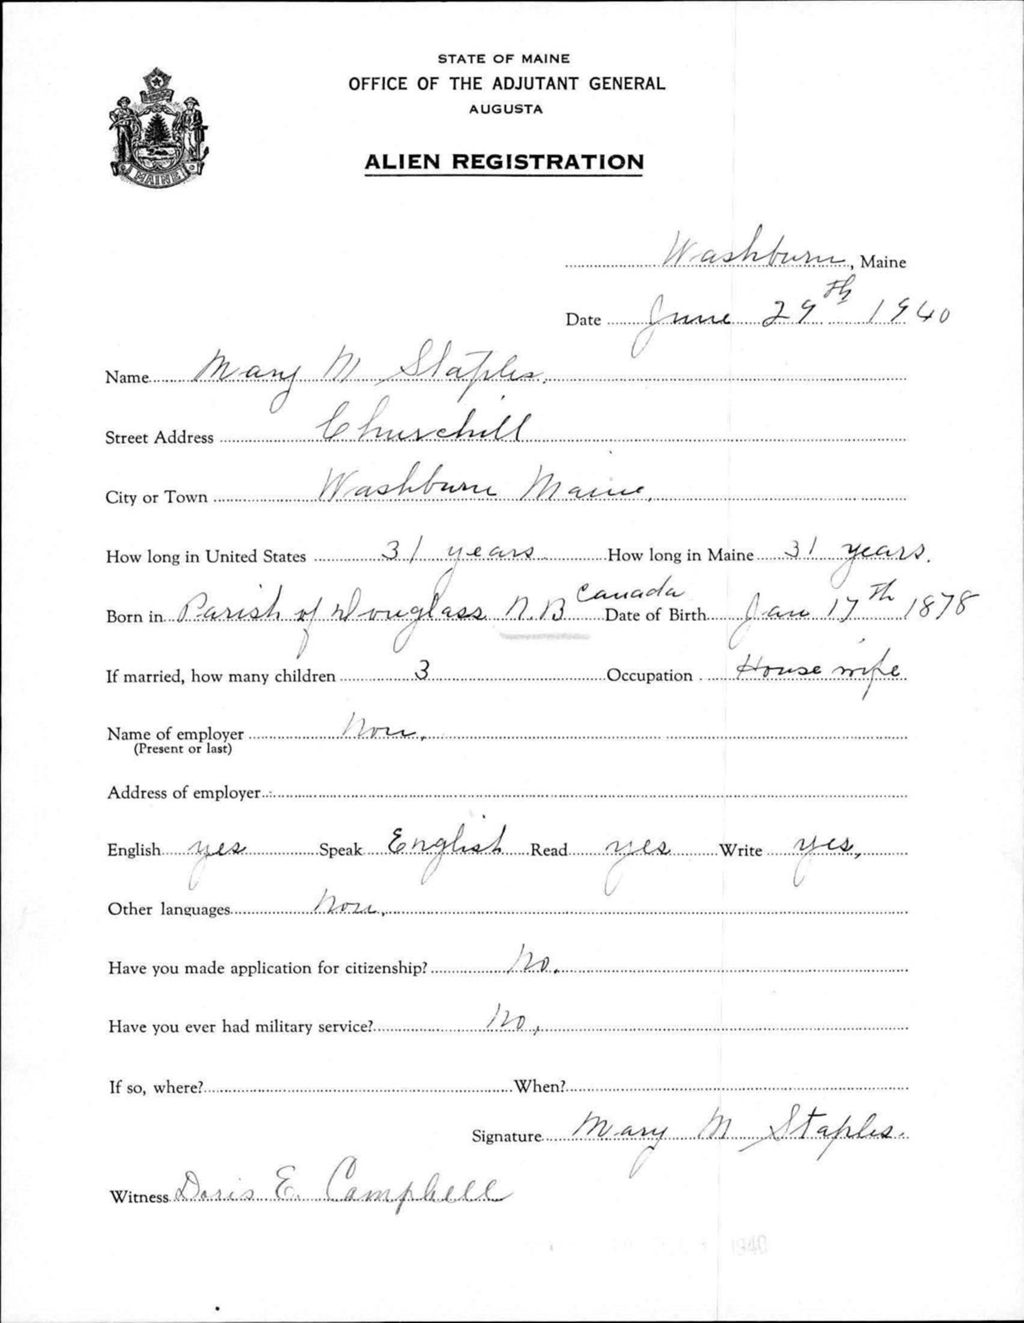 STATE OF MAINE
OFFICE OF THE ADJUTANT GENERAL
AUGUSTA
ALIEN REGISTRATION
MAINE
Washburn, Maine
Date June 29th 1940
Name Mary M Staples.
Street Address Churchill
City or Town Washburn Maine.
How long in United States 31 years How long in Maine 31 years.
Born in Parish of Douglass N.B Canada Date of Birth Jan 17th 1878
If married, how many children 3 Occupation House wife
Name of employer Non.
(Present or last)
Address of employer
English yes Speak English Read yes Write yes.
Other languages Non.
Have you made application for citizenship? No.
Have you ever had military service? No.
If so, where? When?
Signature Mary M Staples.
Witness Doris E. Campbell
1940